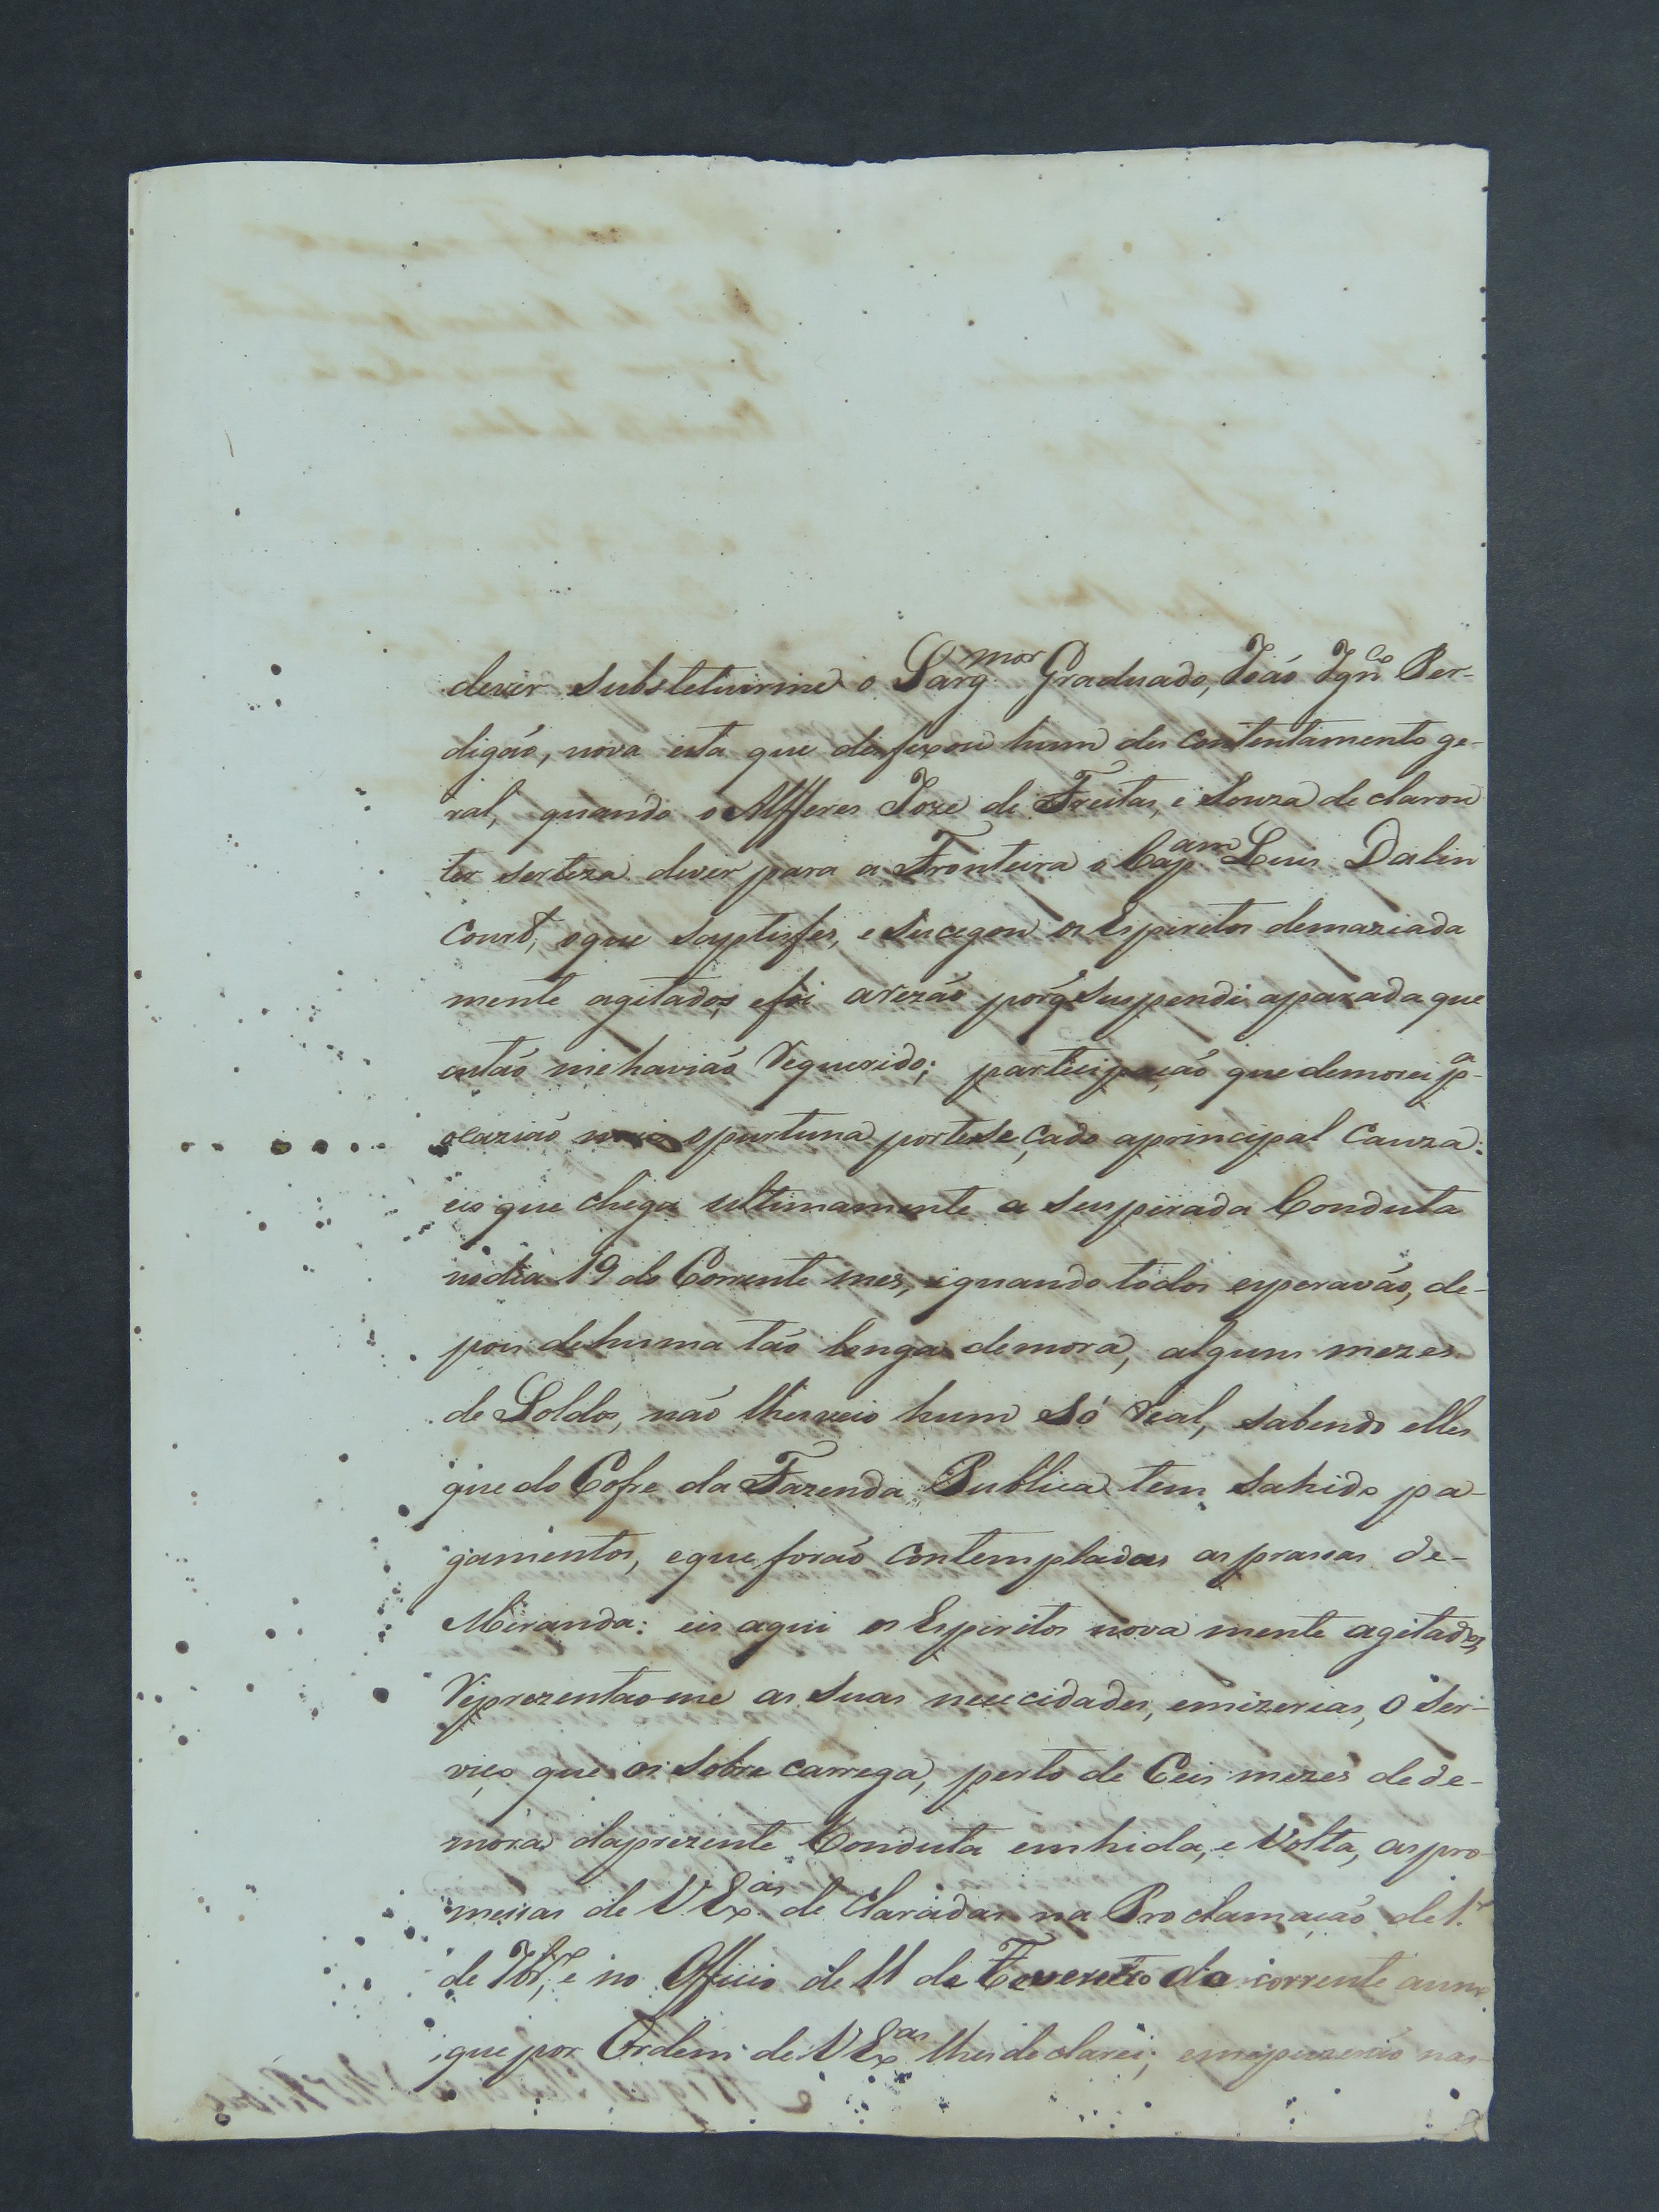 devir substetuirme o Sarg.mor Graduado, João Ign.co Per-
digaõ, nova esta que disfexou hum des contentamento ge-
ral, quando o Alfferes Joze de Freitas, e Souza de clarou
ter serteza devir para a Fronteira o Cap.am Luis Dalin
Court, oque saptisfes, e sucegou os Espiretos demaziada
mente agitados, efoi arezaõ porq̃ suspendi aparada que
entaõ mehaviaõ Requerido; participaçaõ que demorei p.a
ocaziaõ mais opurtuna porterse çado aprincipal Cauza:
eis que chega ultimamente a suspirada Conduta
nodia 19 do Corrente mes, equando todos esperavaõ, de-
pois dehuma taõ longa demora, alguns mezes
de Soldos, naõ lhesveio hum só real, sabendo elles
que do Cofre da Fazenda Publica tem sahido pa-
gamentos, eque foraõ contempladas as prassas de-
Miranda: eis aqui os Espiritos nova mente agitados,
Reprezentaome as suas nececidades, emizerias, o ser-
viço que os sobre carrega, perto de Ceis mezes dede-
mora daprezente Conduta emhida, e Volta, aspro-
messas de V Ex.as de claradas na Proclamaçaõ de 1.º
de 7br.e, e no Officio de 11 de Fevereiro do corrente anno
que por Ordem de V Ex.as lhesdeclarei;